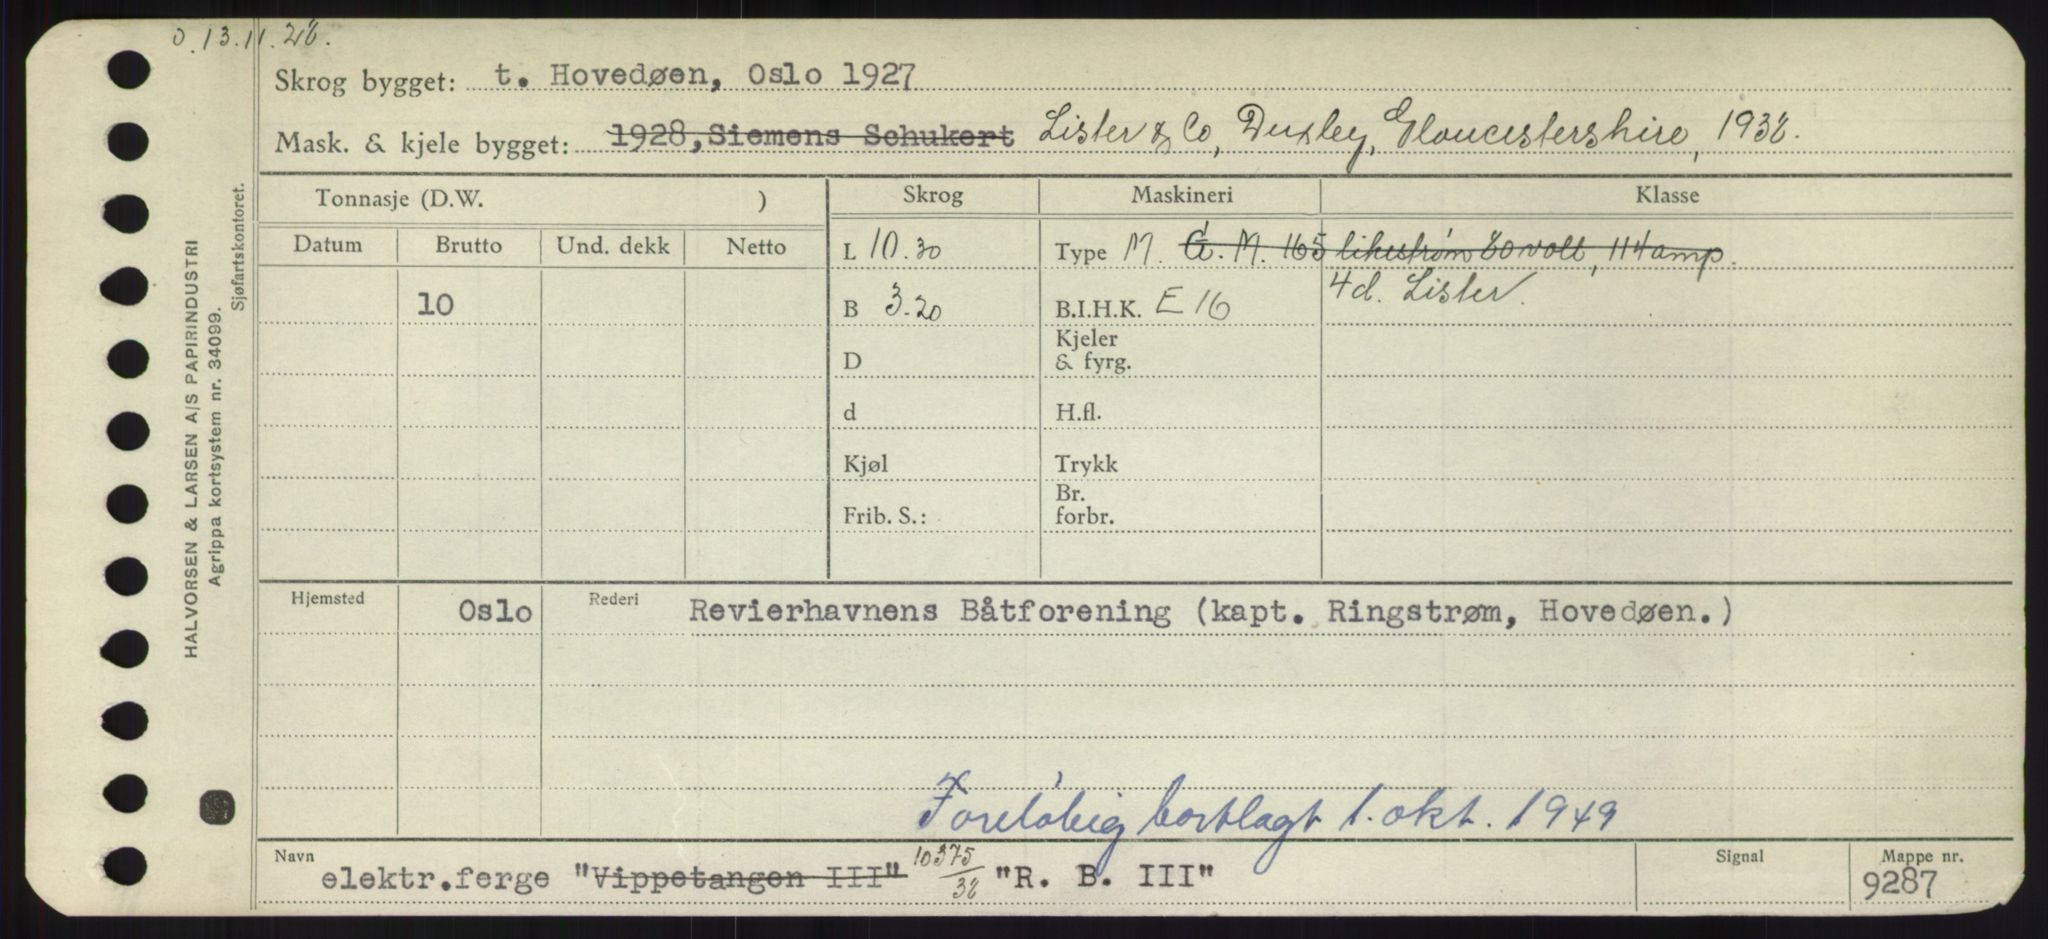 O. 13.11.28.
Skrog bygget: t. Hovedøen, Oslo 1927
Mask. & kjele bygget: 1928, Siemens Schukert Lister & Co, Dursley, Gloucestershire, 1938.
Tonnasje (D.W. ) Skrog Maskineri Klasse
Datum Brutto Und. dekk Netto L 10.30 Type M. G. M. 165 likestrøm 80 volt, 114 amp.
4d. Lister.
10 B 3.20 B.I.H.K. E 16
Kjeler
D & fyrg.
d H.fl.
Kjøl Trykk
Br.
Frib. S.: forbr.
Hjemsted Oslo Rederi Revierhavnens Båtforening (kapt. Ringstrøm, Hovedøen.)
Foreløbig bortlagt 1. okt. 1949
Navn Signal Mappe nr.
elektr.ferge "Vippetangen III" 10375/38 "R. B. III" 9287
HALVORSEN & LARSEN A/S PAPIRINDUSTRI
Agrippa kortsystem nr. 34099.
Sjøfartskontoret.